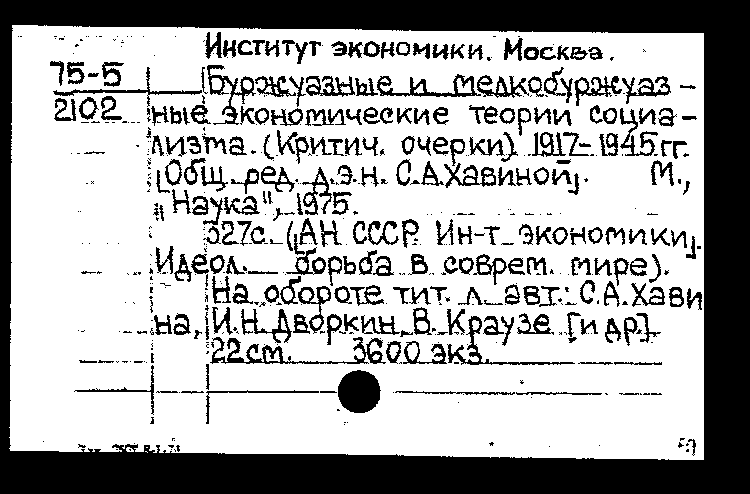 Институт экономики. Москва.
75-5
2102
Буржуазные и мелкобуржуаз-
ные экономические теории социа-
лизма. (Критич. очерки) 1917-1945 гг.
[Общ. ред. д.э.н. С.А.Хавиной]. М.,
"Наука", 1975.
327с. (АН СССР. Ин-т экономики].
Идеол. борьба в соврем. мире).
На обороте тит. л. авт.: С.А.Хави
на, И.Н. Дворкин, В. Краузе [и др].
22 см. 3600 экз.